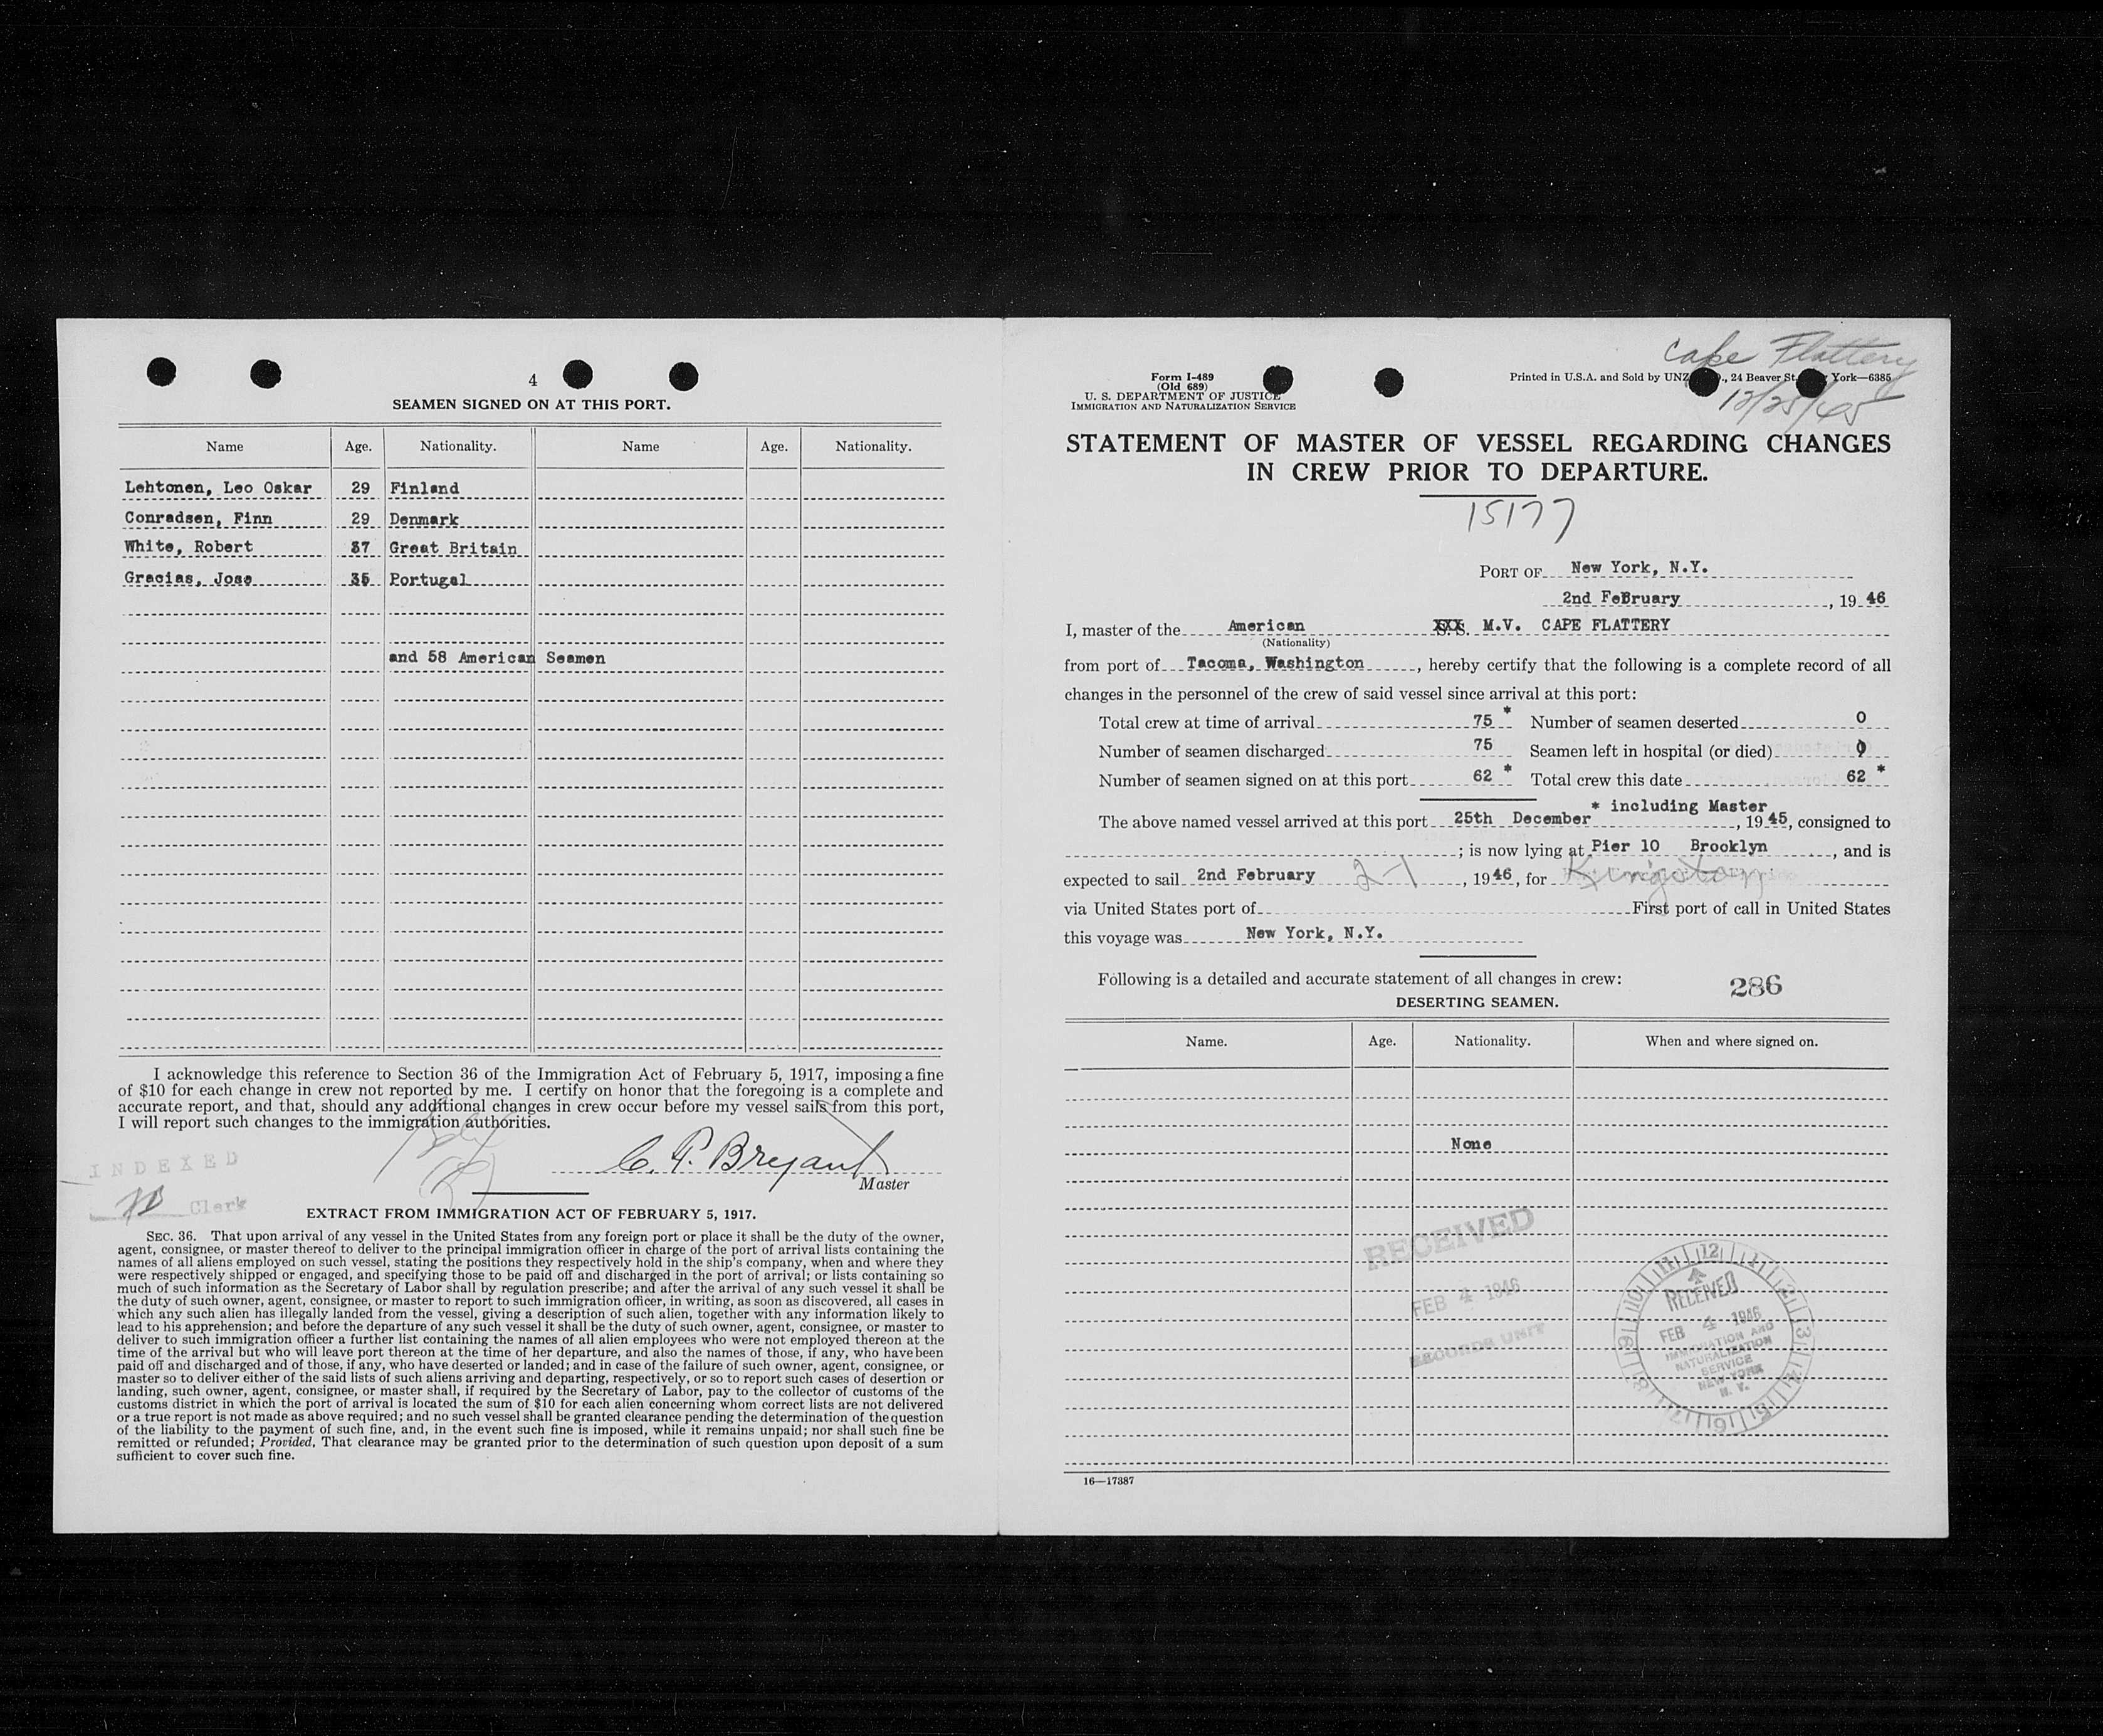 4
SEAMEN SIGNED ON AT THIS PORT.
Name Age. Nationality. Name Age. Nationality.
Lehtonen, Leo Oskar 29 Finland
Conradsen, Finn 29 Denmark
White, Robert 37 Great Britain
Gracias, Jose 35 Portugal
and 58 American Seamen
I acknowledge this reference to Section 36 of the Immigration Act of February 5, 1917, imposing a fine
of $10 for each change in crew not reported by me. I certify on honor that the foregoing is a complete and
accurate report, and that, should any additional changes in crew occur before my vessel sails from this port,
I will report such changes to the immigration authorities.
INDEXED
Clerk
C. P. Bryant
Master
EXTRACT FROM IMMIGRATION ACT OF FEBRUARY 5, 1917.
SEC. 36. That upon arrival of any vessel in the United States from any foreign port or place it shall be the duty of the owner,
agent, consignee, or master thereof to deliver to the principal immigration officer in charge of the port of arrival lists containing the
names of all aliens employed on such vessel, stating the positions they respectively hold in the ship's company, when and where they
were respectively shipped or engaged, and specifying those to be paid off and discharged in the port of arrival; or lists containing so
much of such information as the Secretary of Labor shall by regulation prescribe; and after the arrival of any such vessel it shall be
the duty of such owner, agent, consignee, or master to report to such immigration officer, in writing, as soon as discovered, all cases in
which any such alien has illegally landed from the vessel, giving a description of such alien, together with any information likely to
lead to his apprehension; and before the departure of any such vessel it shall be the duty of such owner, agent, consignee, or master to
deliver to such immigration officer a further list containing the names of all alien employees who were not employed thereon at the
time of the arrival but who will leave port thereon at the time of her departure, and also the names of those, if any, who have been
paid off and discharged and of those, if any, who have deserted or landed; and in case of the failure of such owner, agent, consignee, or
master so to deliver either of the said lists of such aliens arriving and departing, respectively, or so to report such cases of desertion or
landing, such owner, agent, consignee, or master shall, if required by the Secretary of Labor, pay to the collector of customs of the
customs district in which the port of arrival is located the sum of $10 for each alien concerning whom correct lists are not delivered
or a true report is not made as above required; and no such vessel shall be granted clearance pending the determination of the question
of the liability to the payment of such fine, and, in the event such fine is imposed, while it remains unpaid; nor shall such fine be
remitted or refunded; Provided, That clearance may be granted prior to the determination of such question upon deposit of a sum
sufficient to cover such fine.
Cape Flattery
12/25/45
Form I-489
(Old 689)
U. S. DEPARTMENT OF JUSTICE
IMMIGRATION AND NATURALIZATION SERVICE
Printed in U.S.A. and Sold by UNZ , 24 Beaver St. York—6385
STATEMENT OF MASTER OF VESSEL REGARDING CHANGES
IN CREW PRIOR TO DEPARTURE.
15177
PORT OF New York, N.Y.
2nd February, 19 46
I, master of the American M.V. CAPE FLATTERY
(Nationality)
from port of Tacoma, Washington, hereby certify that the following is a complete record of all
changes in the personnel of the crew of said vessel since arrival at this port:
Total crew at time of arrival 75 * Number of seamen deserted 0
Number of seamen discharged 75 Seamen left in hospital (or died) 0
Number of seamen signed on at this port 62 * Total crew this date 62 *
* including Master
The above named vessel arrived at this port 25th December, 19 45, consigned to
; is now lying at Pier 10 Brooklyn, and is
expected to sail 2nd February 2-1, 19 46, for Kingston
via United States port of First port of call in United States
this voyage was New York, N.Y.
Following is a detailed and accurate statement of all changes in crew:
286
DESERTING SEAMEN.
Name. Age. Nationality. When and where signed on.
None
RECEIVED
FEB 4 1946
RECORDS UNIT
RECEIVED
FEB 4 1946
IMMIGRATION AND
NATURALIZATION
SERVICE
NEW YORK
N. Y.
16—17387